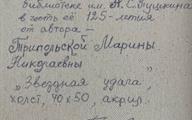 библиотеке им. А.С. Пушкина
в честь её 125-летия
от автора –
Трипольской Марины
Николаевны
"Звездная удача",
холст, 40х50, акрил.